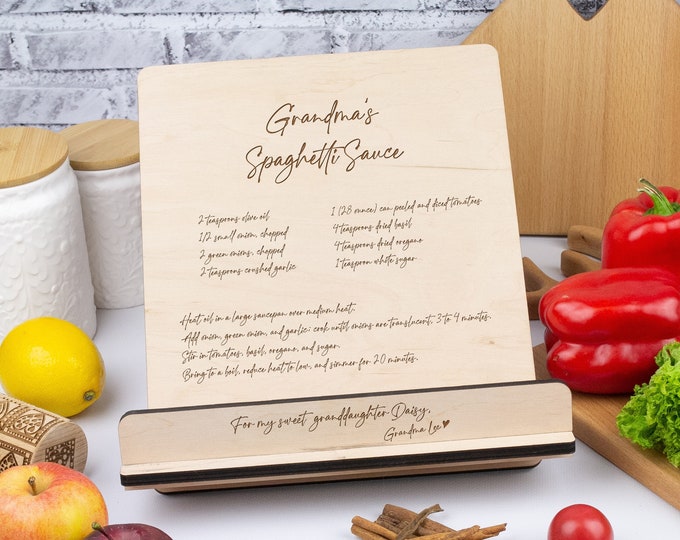 Grandma's
Spaghetti Sauce
2 teaspoons olive oil
1/2 small onion, chopped
2 green onions, chopped
2 teaspoons crushed garlic
1 (28 ounce) can peeled and diced tomatoes
4 teaspoons dried basil
4 teaspoons dried oregano
1 teaspoon white sugar
Heat oil in a large saucepan over medium heat.
Add onion, green onion, and garlic; cook until onions are translucent, 3 to 4 minutes.
Stir in tomatoes, basil, oregano, and sugar.
Bring to a boil, reduce heat to low, and simmer for 20 minutes.
For my sweet granddaughter Daisy,
Grandma Lee♥